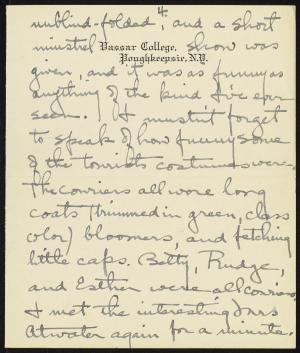 4.
unblind-folded, and a short
minstrel show was
Vassar College,
Poughkeepsie, N.Y.
given, and it was as funny as
anything of the kind I've ever
seen. I mustn't forget
to speak of how funny some
of the tourists costumes were.
The couriers all wore long
coats (trimmed in green, class
color) bloomers, and fetching
little caps. Betty, Rudge,
and Esther were all couriers.
I met the interesting Mrs
Atwater again for a minute.